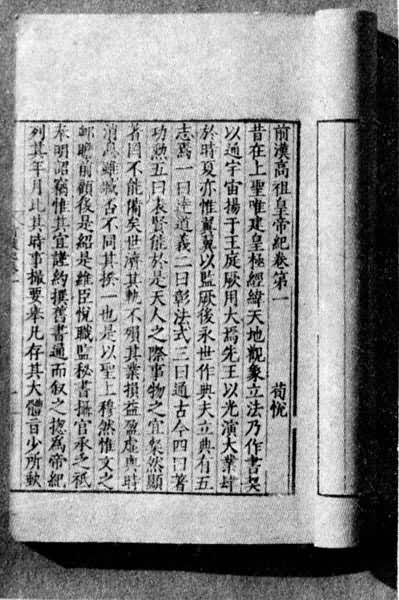 前漢高祖皇帝紀卷第一 荀悅
昔在上聖唯建皇極經緯天地觀象立法乃作書契
以通宇宙揚于王庭厥用大焉先王以光演大業肆
於時夏亦惟翼翼以監厥後永世作典夫立典有五
志焉一曰達道義二曰彰法式三曰通古今四曰著
功勲五曰表賢能於是天人之際事物之宜粲然顯
著罔不能備矣世濟其軌不殞其業損益盈虛與時
消息雖臧否不同其揆一也是以聖上穆然惟文之
卹瞻前顧後是紹是維臣悅職監秘書攝官承乏祗
奉明詔竊惟其宜謹約撰舊書通而叙之揔為帝紀
列其年月比其時事撮要舉凡存其大體旨少所缺